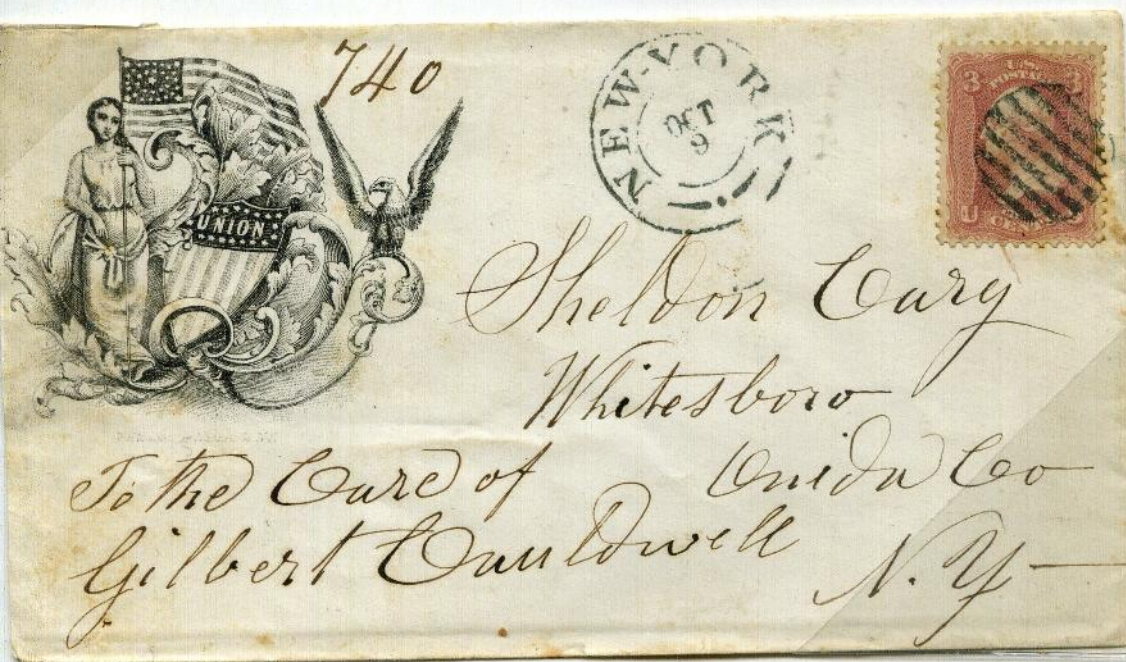 740
NEW-YORK
OCT
9
3 3
U.S.
POSTAGE
U
CENTS
UNION
Sheldon Cary
Whitesboro
Oneida Co
N.Y
To the Care of
Gilbert Cauldwell